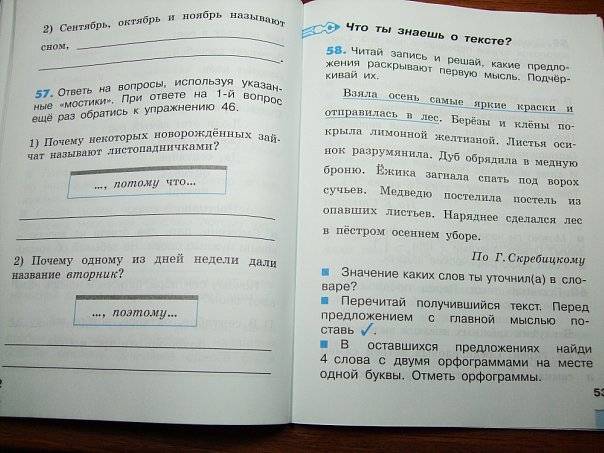 2) Сентябрь, октябрь и ноябрь называют
сном,
57. Ответь на вопросы, используя указан-
ные «мостики». При ответе на 1-й вопрос
ещё раз обратись к упражнению 46.
1) Почему некоторых новорождённых зай-
чат называют листопадничками?
..., потому что...
2) Почему одному из дней недели дали
название вторник?
..., поэтому...
Что ты знаешь о тексте?
58. Читай запись и решай, какие предло-
жения раскрывают первую мысль. Подчёр-
кивай их.
Взяла осень самые яркие краски и
отправилась в лес. Берёзы и клёны по-
крыла лимонной желтизной. Листья оси-
нок разрумянила. Дуб обрядила в медную
броню. Ёжика загнала спать под ворох
сучьев. Медведю постелила постель из
опавших листьев. Наряднее сделался лес
в пёстром осеннем уборе.
По Г. Скребицкому
Значение каких слов ты уточнил(а) в сло-
варе?
Перечитай получившийся текст. Перед
предложением с главной мыслью по-
ставь ✓.
В оставшихся предложениях найди
4 слова с двумя орфограммами на месте
одной буквы. Отметь орфограммы.
53